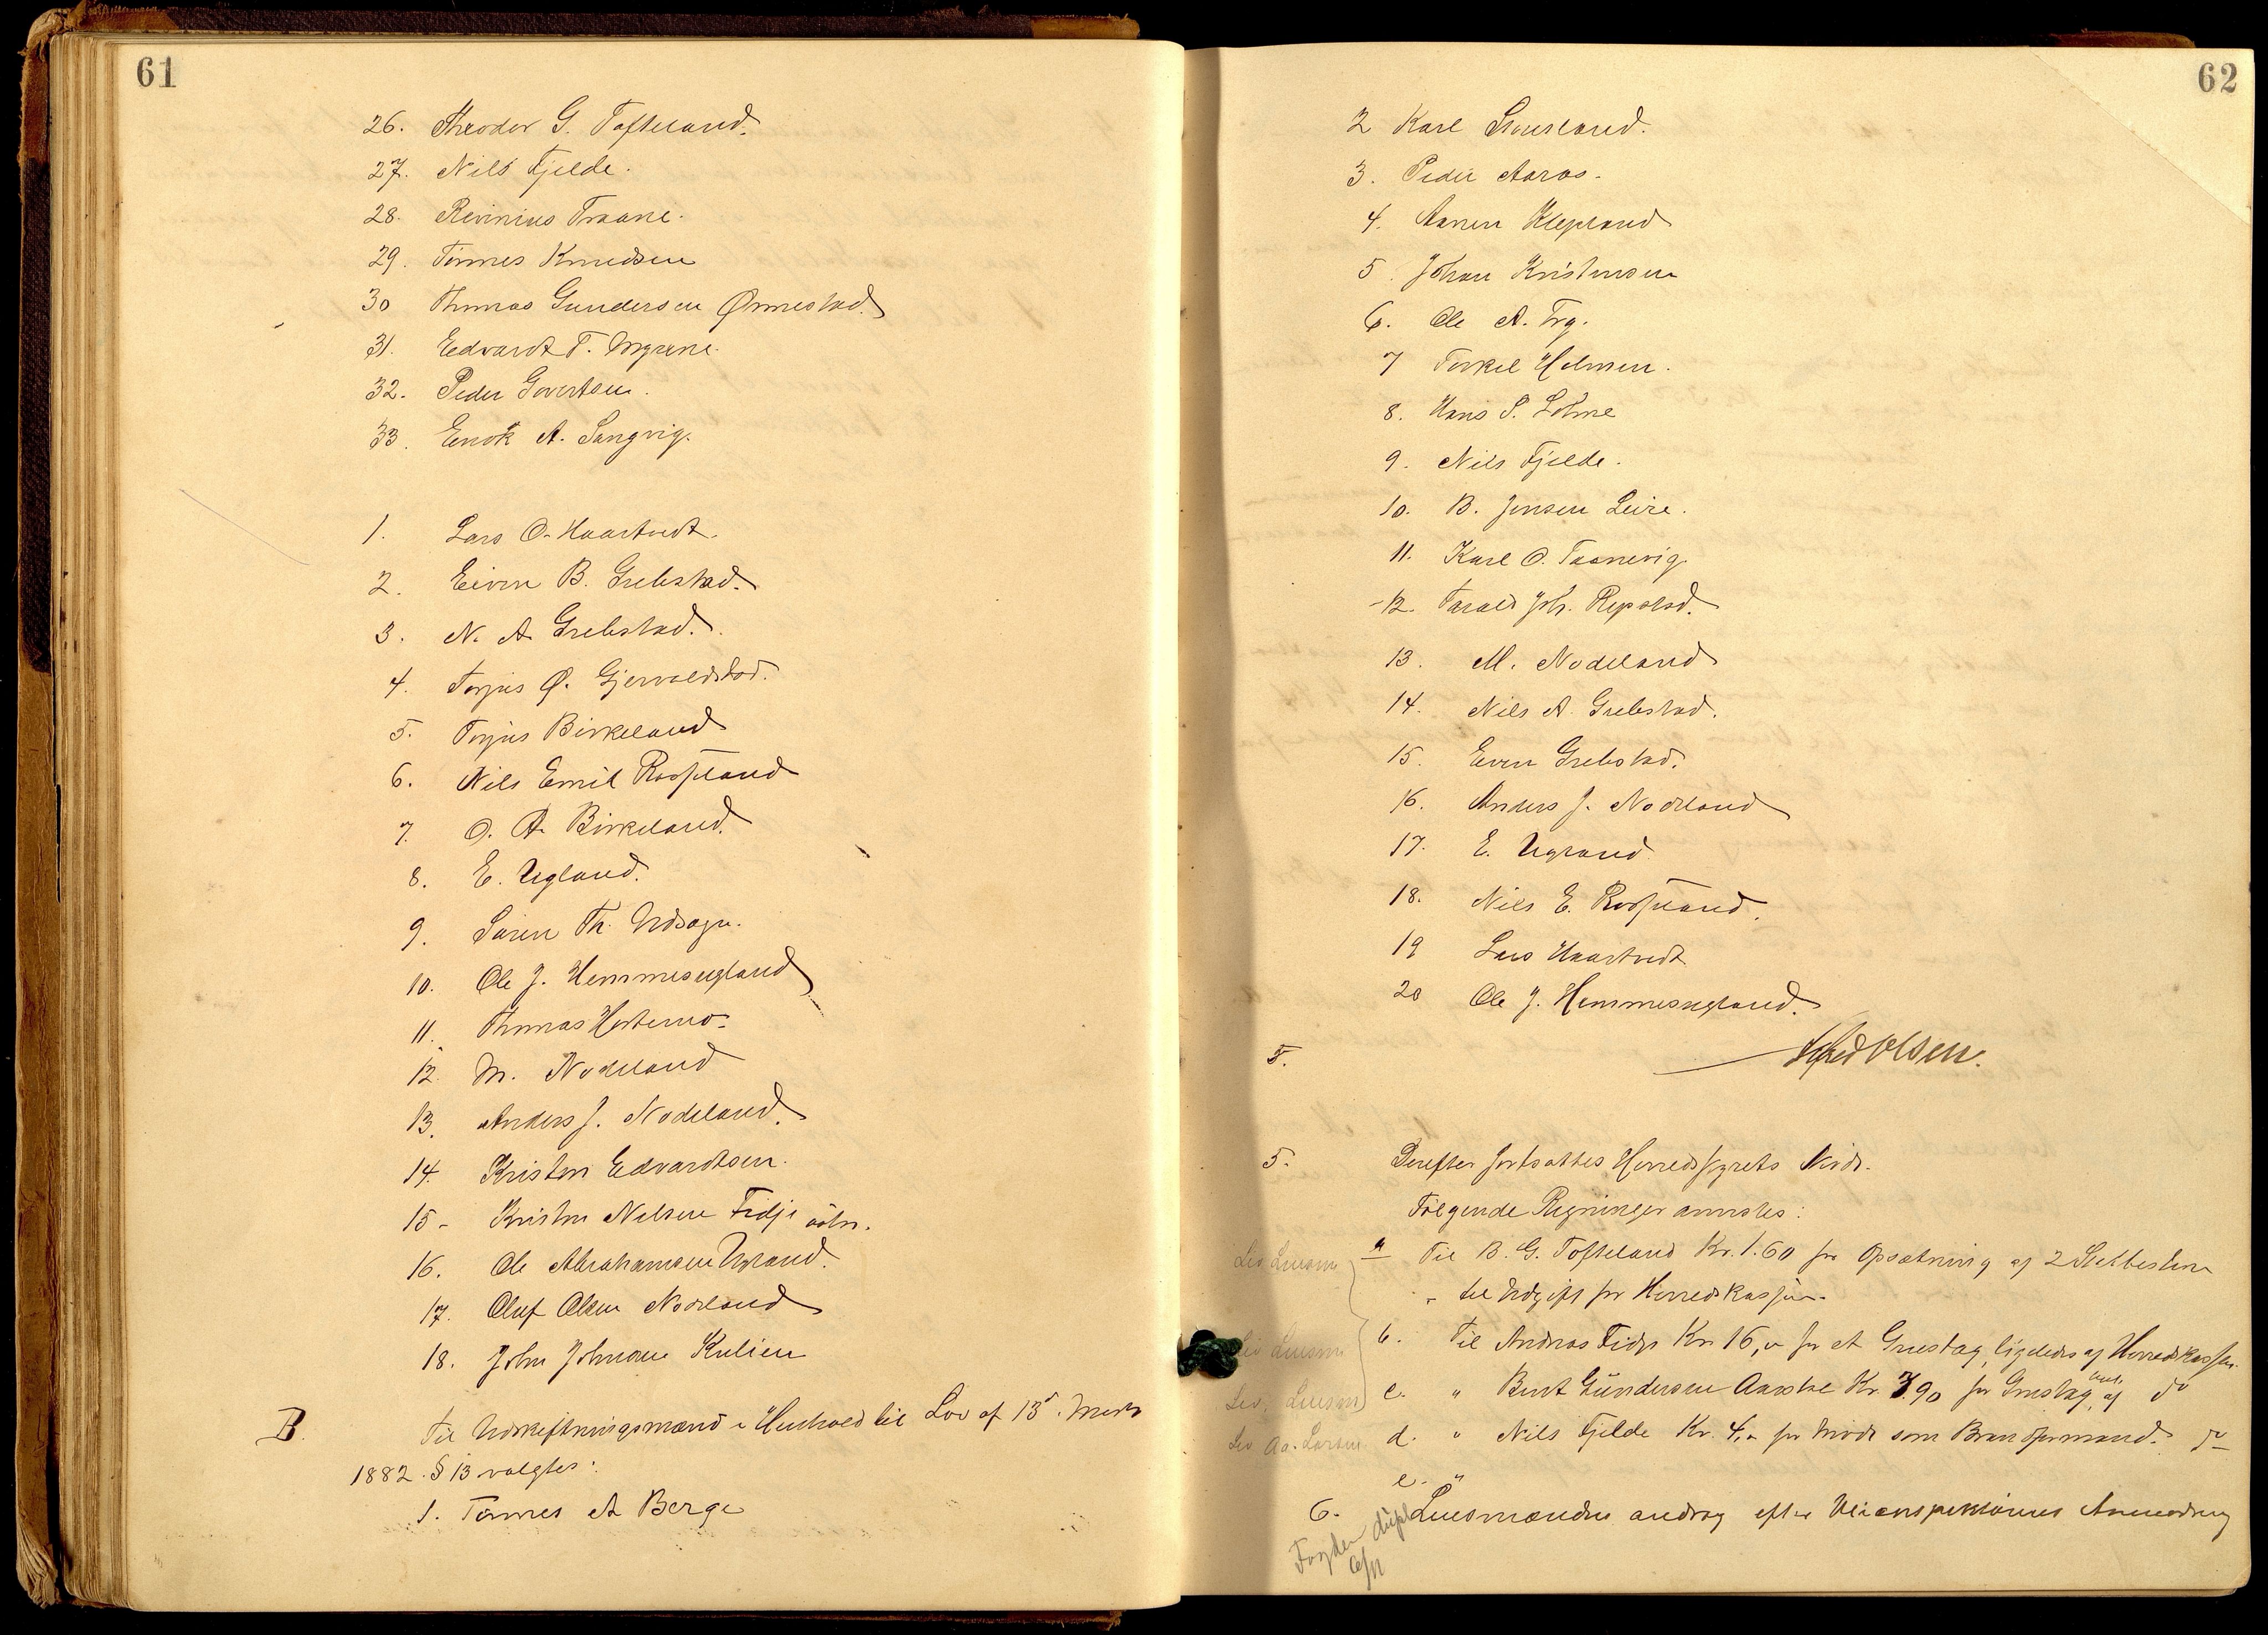 61
26. Theodor G. Tofteland.
27. Nils Fjelde.
28. Revinius Traane.
29. Tönnes Knudsen
30 Thomas Gundersen Ormestad.
31. Edvardt T. Mgrene.
32. Peder Govertsen.
33. Enok A. Langvig.
1. Lars O. Haartvedt.
2. Eiven B. Grebstad.
3. N. A. Grebstad.
4. Torjus O. Gjervoldstad.
5. Torjus Birkeland
6. Nils Emil Rosseland
7. O. A. Birkeland.
8. E. Ugland.
9. Sören Th. Udsogn.
10. Ole J. Hemmesugland
11. Thomas Hortemo.
12. M. Nodeland
13. Anders J. Nodeland.
14. Kristen Edvardtsen.
15. Kristen Nelsen Fidje östr.
16. Ole Abrahamsen Ugland.
17. Oluf Olsen Nodeland
18. John Johnsen Kulien
B. Til Udskiftningsmænd i Henhold til Lov af 13de Marts
1882 § 13 valgtes:
1. Tönnes A Berge
62
2 Karl Stousland.
3. Peder Aaros.
4. Aanen Klepland
5. Johan Kristensen
6. Ole A. Try.
7 Torkel Holmen.
8. Hans S. Lohne
9. Nils Fjelde.
10. B. Jensen Leire.
11. Karl O. Taanevig.
12. Tarald Joh. Repstad.
13. M. Nodeland
14. Nils A. Grebstad.
15. Even Grebstad.
16. Anders J. Nodeland
17. E. Ugland
18. Nils E. Rosseland.
19 Lars Haartvedt
20 Ole J. Hemmesugland.
5. Alfred Olsen.
5. Derefter fortsattes Herredsstyrets Möde.
Fölgende Regninger anvistes:
Lev. Lensm a Til B. G. Tofteland Kr. 1.60 for Opsætning af 2
til Udgift for Herredskassen.
Lev Lensm b. Til Andreas Fidje Kr. 16,- for et Grustag, ligeledes af Herredskassen.
Lev. Lensm c. " Bent Gundersen Kr. 7.90 for Grustag, af do
Lev Aa. Larsen d. " Nils Fjelde Kr. 4,- for Möde som Brandformand. do
e. "
6. Lensmanden androg efter Veiinspektörens Anmodning
Fogden dupl.
6/11